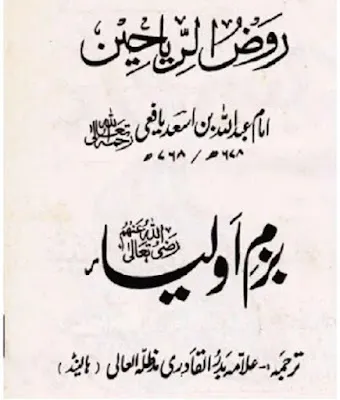 روض الریاحین
امام عبداللہ بن اسعد یافعی رحمۃ اللہ تعالیٰ
۶۷۸ھ / ۷۶۸ھ
بزمِ اَولیاء رضی اللہ تعالیٰ عنہم
ترجمہ:- علامہ بدر القادری مدظلہ العالی (ہالینڈ)